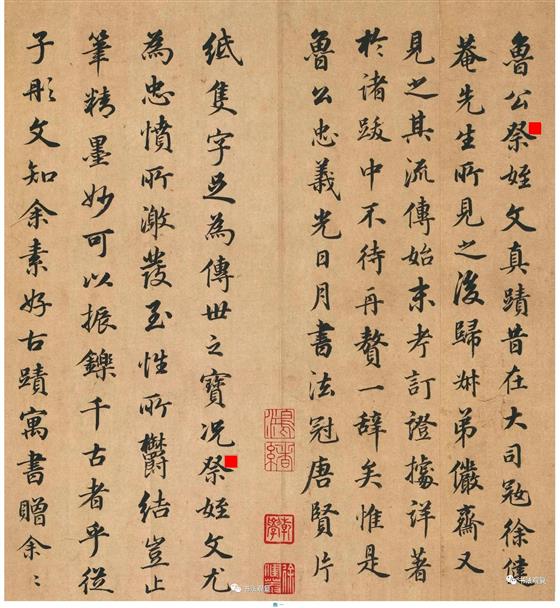 魯公祭姪文真蹟昔在大司寇徐健
菴先生所見之後歸叔弟儼齋又
見之其流傳始末考訂證據詳著
於諸跋中不待再贅一辭矣惟是
魯公忠義光日月書法冠唐賢片
紙隻字足為傳世之寶況祭姪文尤
為忠憤所激發至性所鬱結豈止
筆精墨妙可以振鑠千古者乎從
子彤文知余素好古蹟寓書贈余〻
鴻緒
书法观复
书法观复